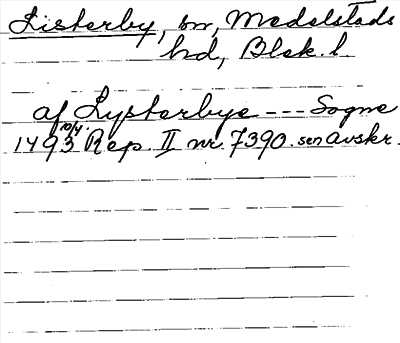 Listerby, sn, Medelstads
hd, Blek. l.
af Lysterbye --- Sogne
1493 10/4 Rep. II nr. 7390. sen avskr.